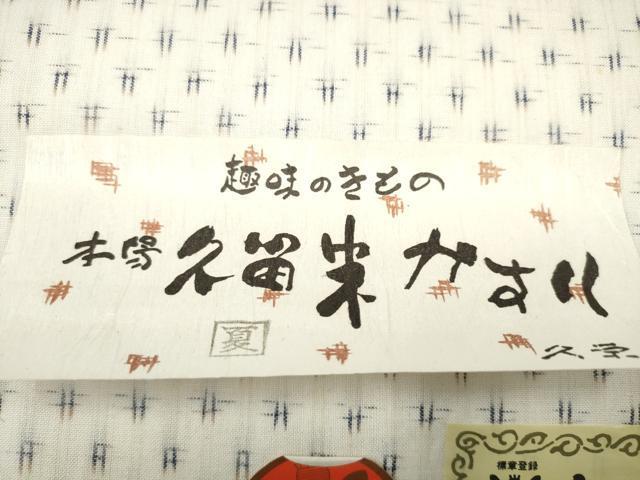 趣味のきもの
本場 久留米かすり
夏
標章登録